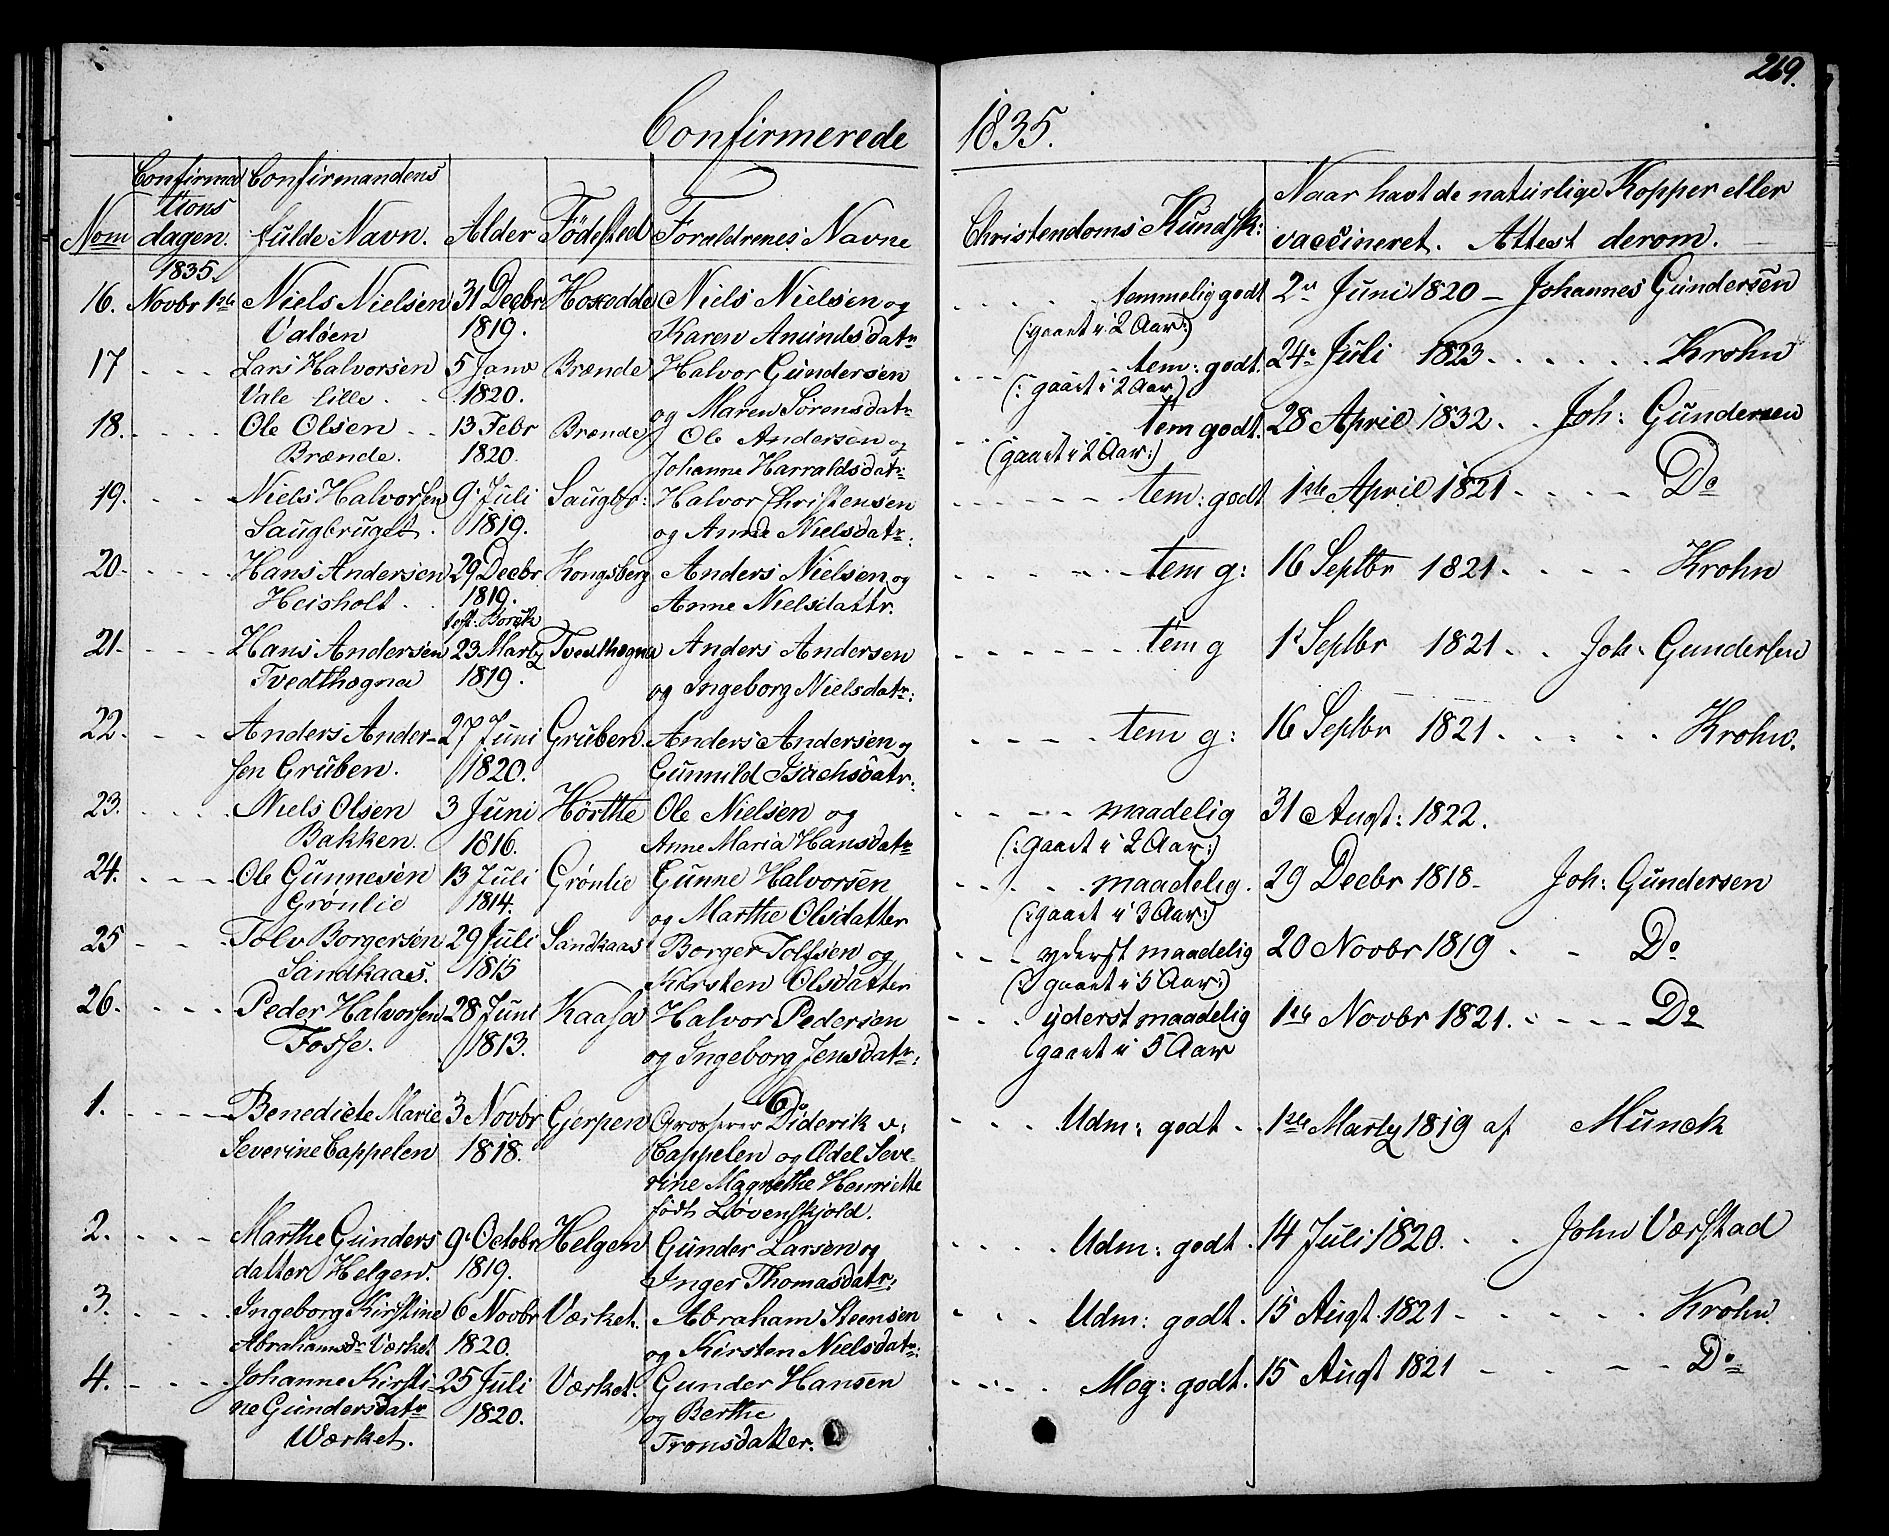 269.
Confirmerede 1835.
Nom
Confirma
tions
dagen.
Confirmandens
fulde Navn.
Alder
Födested
Foraldrenes Navne
Christendoms Kundsk:
Naar havt de naturlige Kopper eller
vaccineret. Attest derom.
1835.
16. Novbr 1ste Niels Nielsen 31 Decbr Niels Nielsen og temmelig godt 2n Juni 1820 - Johannes Gundersen
Valöen 1819. Karen Anunds datr (: gaaet i 2 Aar:)
17 Lars Halvorsen 5 Janv Brænde Halvor Gundersen tem: godt. 24e Juli 1823 Krohn
Vale lille 1820. og Maren Sørensdatr (: gaaet i 2 Aar)
18. Ole Olsen 13 Febr Brænde Ole Andersen og tem godt. 28 April 1832. Joh: Gundersen
Brænde. 1820. Johanne Harraldsdatr: (gaaet i 2 Aar:)
19. Niels Halvorsen 9 Juli Saugbr: Halvor Christensen tem: godt 1ste April 1821 Do
Saugbruget. 1819. og Anne Nielsdatr:
20. Hans Andersen 29 Decbr Kongsberg Anders Nielsen og tem g: 16 Septbr 1821 Krohn
Heisholt. 1819. Anne Nielsdattr.
21. Hans Andersen 23 Marty Tvedthogna Anders Andersen tem g 1s Septbr 1821 Joh. Gundersen
Tvedthogna 1819. og Ingeborg Nielsdatr:
22. Anders Ander- 27 Juni Gruben. Anders Andersen og tem g: 16 Septbr 1821 Krohn.
sen Gruben. 1820. Gunnild Isachsdatr.
23. Niels Olsen 3 Juni Hörthe Ole Nielsen og maadelig 31 Augt: 1822.
Bakken. 1816. Anne Maria Hansdatr (: gaaet i 2 Aar:)
24. Ole Gunnesen 13 Juli Grönlie Gunne Halvorsen maadelig. 29 Decbr 1818 Joh: Gundersen
Grönlie 1814. og Marthe Olsdatter (: gaaet i 3 Aar:)
25 Tolv Borgersen 29 Juli Sandkaas Borger Tolfsen og yderst maadelig 20 Novbr 1819 Do
Sandkaas. 1815 Kirsten Olsdatter (: gaaet i 5 Aar:)
26. Peder Halvorsen 28 Juni Kaasa Halvor Pedersen yderst maadelig 1ste Novbr 1821. Do
Fosse. 1813. og Ingeborg Jensdatr: (gaaet i 5 Aar
1. Benedicte Marie 3 Novbr Gjerpen Grosserer Diderik v: Udm: godt 1ste Marty 1819 af Munck
Severine Cappelen 1818. Cappelen og Edel Seve-
rine Magrethe Henriette
födt Løvenskjold.
2. Marthe Gunders 9 Octobr Helgen Gunder Larsen og Udm: godt. 14 Juli 1820. John Værstad
datter Helgen. 1819. Inger Thomasdatr:
3. Ingeborg Kirstine 6 Novbr Værket. Abraham Steensen Udm: godt. 15 Augt. 1821 Krohn
Abrahamsdr Værket 1820. og Kirsten Nielsdatr:
4. Johanne Kirsti- 25 Juli Værket. Gunder Hansen Meg: godt. 15 Augt 1821 Do
ne Gundersdatr 1820. og Berthe
Værket. Tronsdatter.